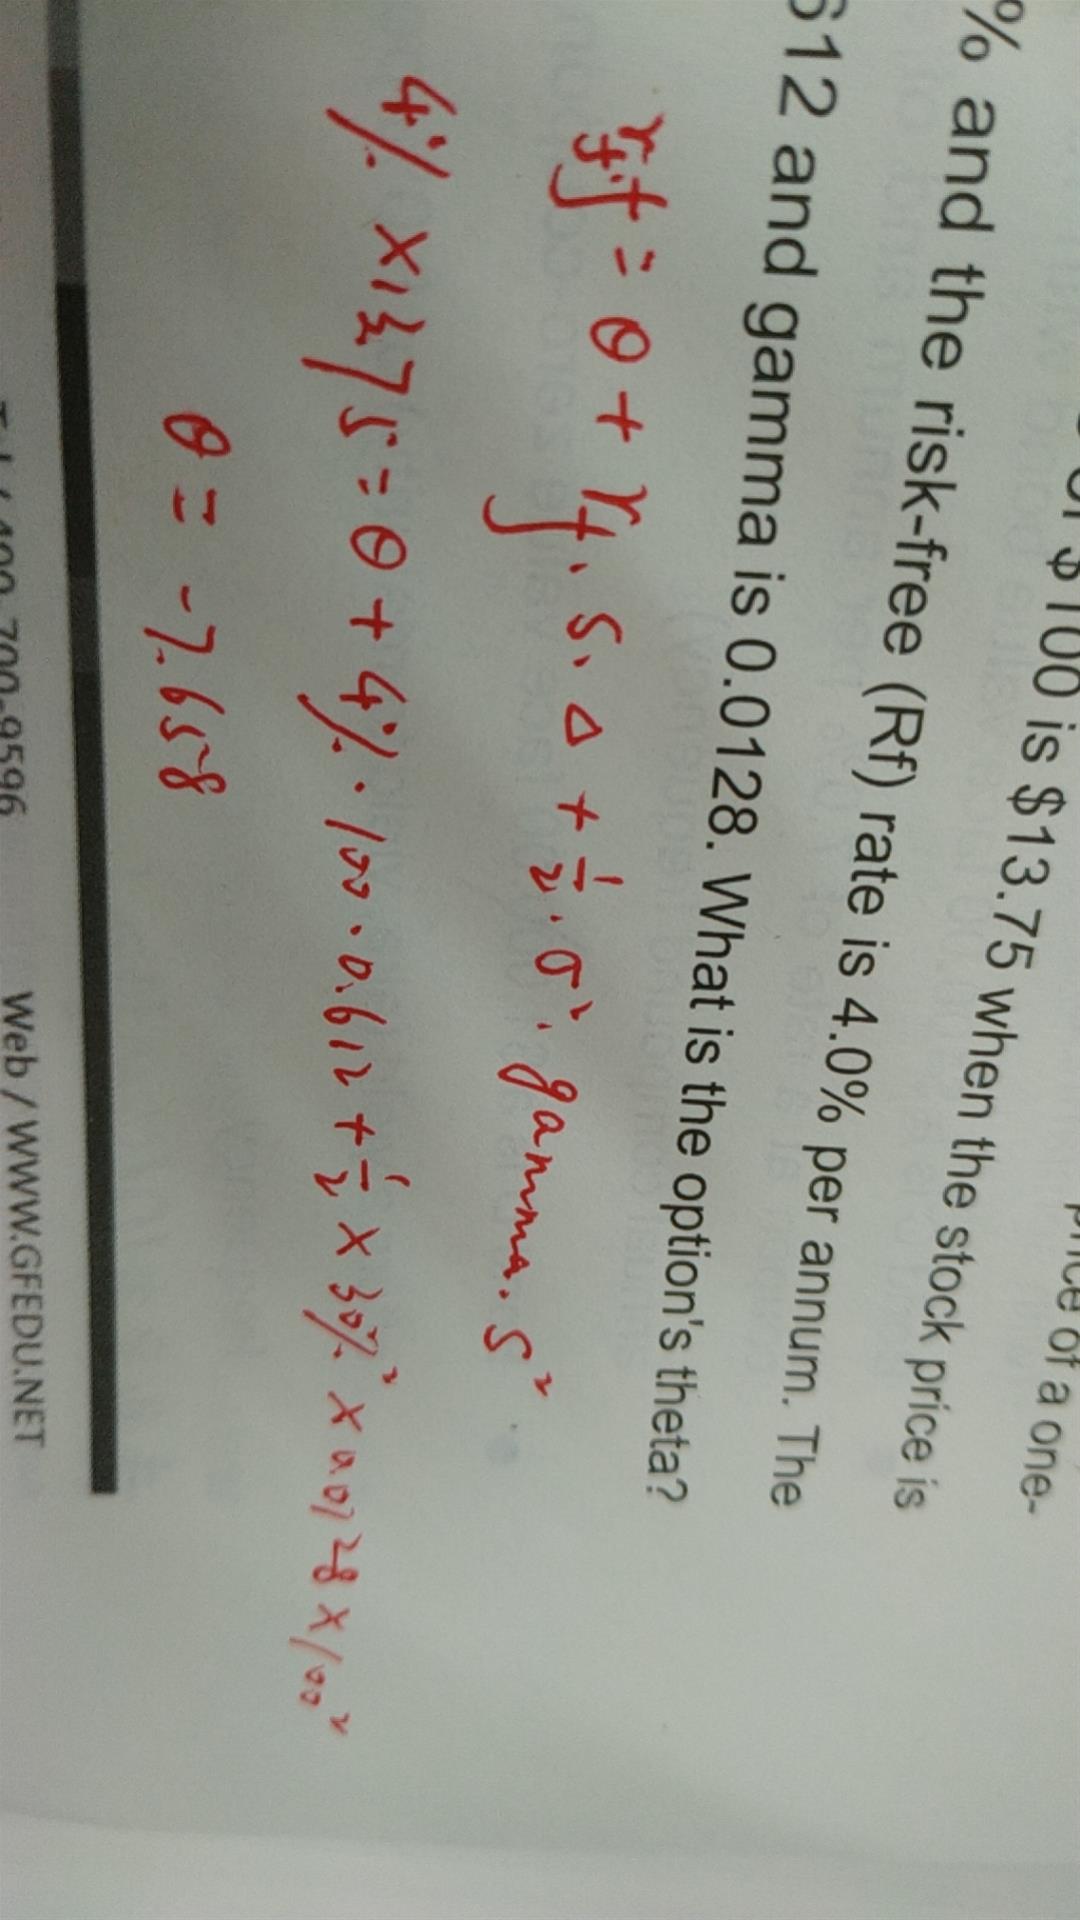 price of a one-
$100 is $13.75 when the stock price is
% and the risk-free (Rf) rate is 4.0% per annum. The
612 and gamma is 0.0128. What is the option's theta?
rf·f = θ + rf·S·Δ + 1/2·σ²·gamma·S²
4% × 13.75 = θ + 4%·100·0.612 + 1/2 × 30%² × 0.0128 × 100²
θ = -7.658
400-700-9596 Web / WWW.GFEDU.NET